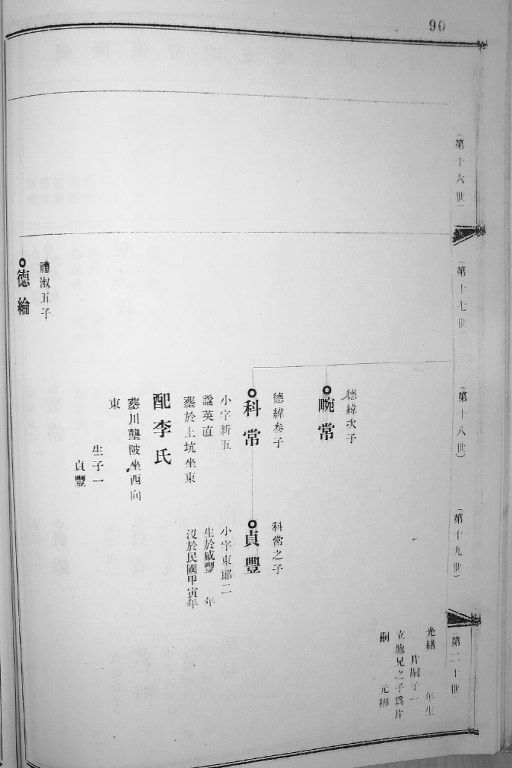 90
第十六世
第十七世
第十八世
第十九世
第二十世
光緒　年生
立胞兄之子爲片
嗣　元
德緯次子
畹常
德緯叁子
科常
小字新五
諡英直
葬於上坑坐東
配李氏
葬川龔陂坐西向
東
生子一
貞豐
科常之子
貞豐
小字東郎二
生於咸豐　年
沒於民國甲寅年
禮淑五子
德綸